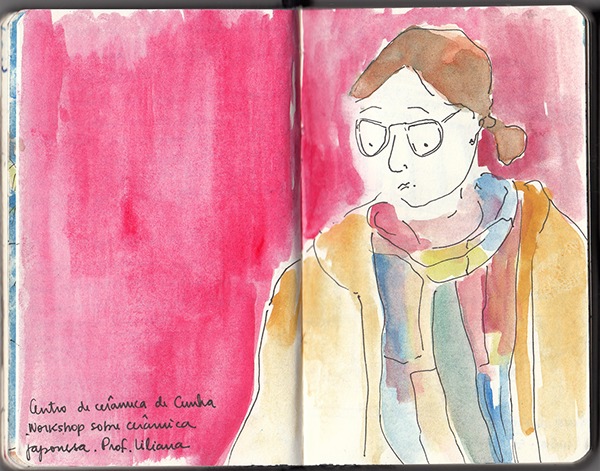 Centro de cerâmica de Cunha
Workshop sobre cerâmica
japonesa. Prof. Liliana